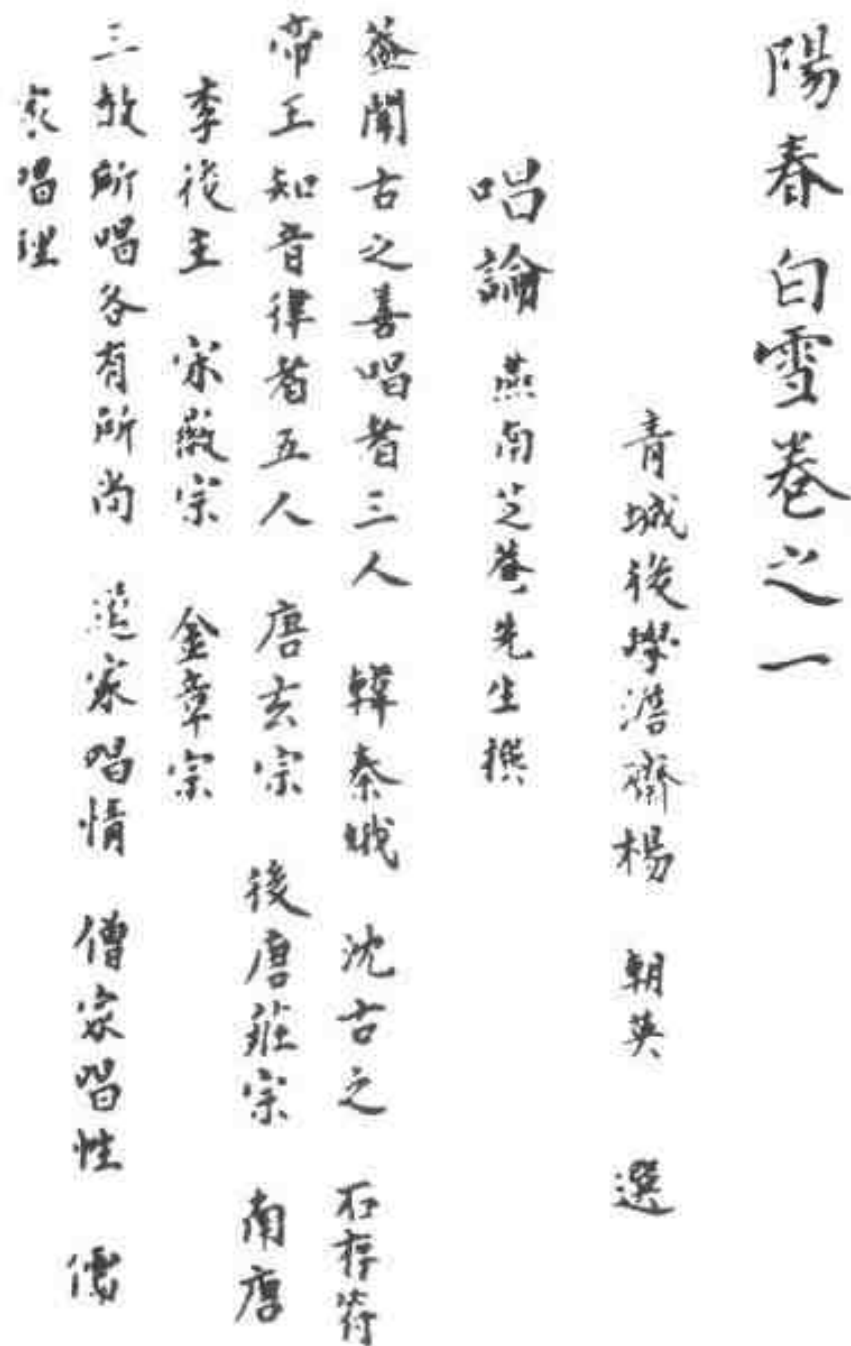 陽春白雪卷之一
青城後學澹齋楊 朝英 選
唱論 燕南芝菴先生撰
葢聞古之善唱者三人 韓秦娥 沈古之 石存符
帝王知音律者五人 唐玄宗 後唐莊宗 南唐
李後主 宋徽宗 金章宗
三教所唱各有所尚 道家唱情 僧家唱性 儒
家唱理